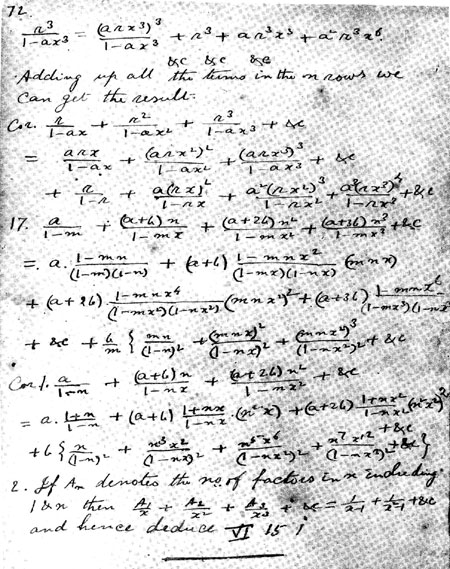 72.
r³/(1-ax³) = (arx³)³/(1-ax³) + r³ + ar³x³ + a²r³x⁶
&c &c &c
Adding up all the terms in the n rows we
can get the result.
Cor. r/(1-ax) + r²/(1-ax²) + r³/(1-ax³) + &c
= arx/(1-ax) + (arx²)²/(1-ax²) + (arx³)³/(1-ax³) + &c
+ r/(1-r) + a(rx)²/(1-rx) + a²(rx²)³/(1-rx²) + a³(rx³)⁴/(1-rx³) + &c
17. a/(1-m) + (a+b)n/(1-mx) + (a+2b)n²/(1-mx²) + (a+3b)n³/(1-mx³) + &c
= a. (1-mn)/((1-m)(1-n)) + (a+b) (1-mnx²)/((1-mx)(1-nx)) (mnx)
+ (a+2b) (1-mnx⁴)/((1-mx²)(1-nx²)) (mnx²)² + (a+3b) (1-mnx⁶)/((1-mx³)(1-nx
+ &c + b/m { mn/(1-n)² + (mnx)²/(1-nx)² + (mnx²)³/(1-nx²)² + &c
Cor 1. a/(1-n) + (a+b)n/(1-nx) + (a+2b)n²/(1-nx²) + &c
= a. (1+n)/(1-n) + (a+b) (1+nx)/(1-nx) (n²x) + (a+2b) (1+nx²)/(1-nx²) (n²x²)²
+ &c
+ b { n/(1-n)² + n³x²/(1-nx)² + n⁵x⁶/(1-nx²)² + n⁷x¹²/(1-nx³)² + &c }
2. If Aₙ denotes the no. of factors in n including
1 & n then A₁/x + A₂/x² + A₃/x³ + &c = 1/(x-1) + 1/(x²-1) + &c
and hence deduce VI 15 i